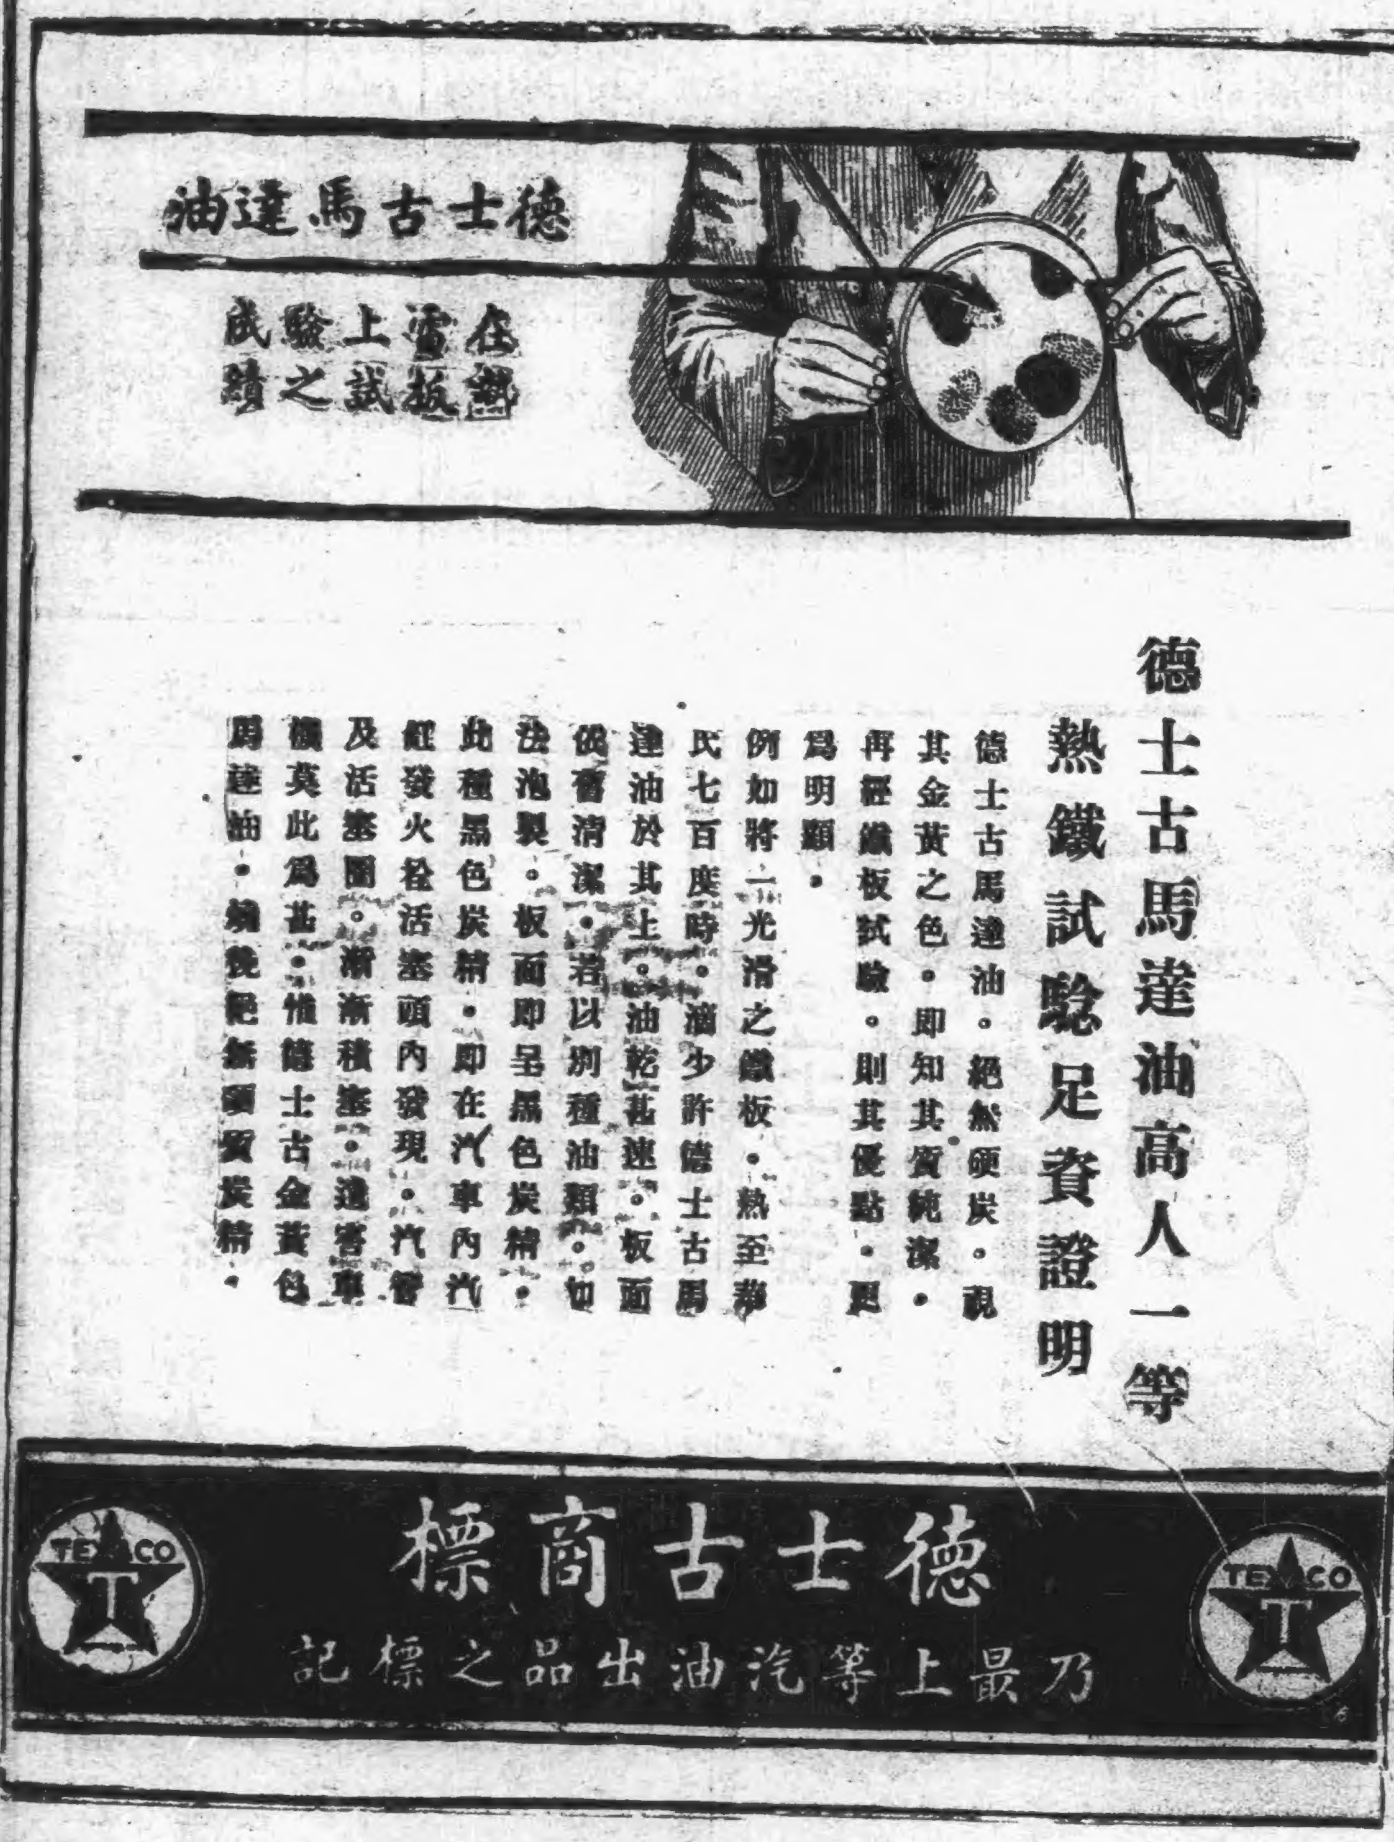 德士古馬達油
在電上驗成
熱板試之績
德士古馬達油高人一等
熱鐵試驗足資證明
德士古馬達油。絕無硬炭。視
其金黃之色。即知其質純潔。
再經鐵板試驗。則其優點。更
爲明顯。
例如將一光滑之鐵板。熱至華
氏七百度時。滴少許德士古馬
達油於其上。油乾甚速。板面
依舊清潔。若以別種油類。如
法泡製。板面即呈黑色炭精。
此種黑色炭精。即在汽車內汽
缸發火栓活塞頭內發現。汽管
及活塞圈。漸漸積塞。遺害車
機莫此爲甚。惟德士古金黃色
馬達油。燒後絕無頑質炭精。
德士古商標
乃最上等汽油出品之標記
TEXACO
T
TEXACO
T